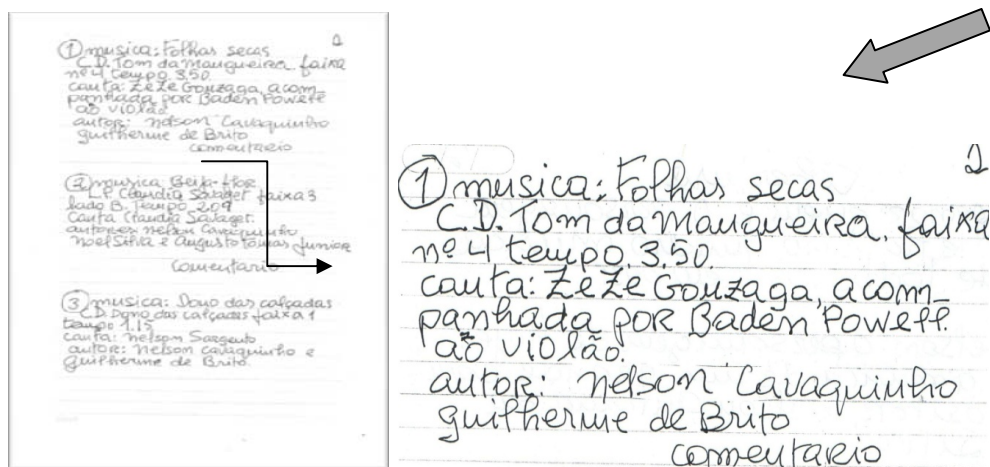 1
① musica: Folhas secas
C.D. Tom da Mangueira. faixa
nº 4 tempo. 3.50.
canta: ZeZe Gonzaga, acom-
panhada por Baden Powell
ao violão.
autor: nelson Cavaquinho
guilherme de Brito
comentario
② musica Beija-flor
L.P. Claudia Savaget faixa 3
lado B. Tempo 2.09
Canta Claudia Savaget.
autores nelson Cavaquinho
noel Silva e Augusto Tomas Junior
Comentario
③ musica: Dono das calçadas
C.D. Dono das calçadas faixa 1
tempo 1.15
canta: nelson Sargento
autor: nelson cavaquinho e
guilherme de Brito.
1
① musica: Folhas secas
C.D. Tom da Mangueira. faixa
nº 4 tempo. 3.50.
canta: ZeZe Gonzaga, acom-
panhada por Baden Powell.
ao violão.
autor: nelson Cavaquinho
guilherme de Brito
comentario